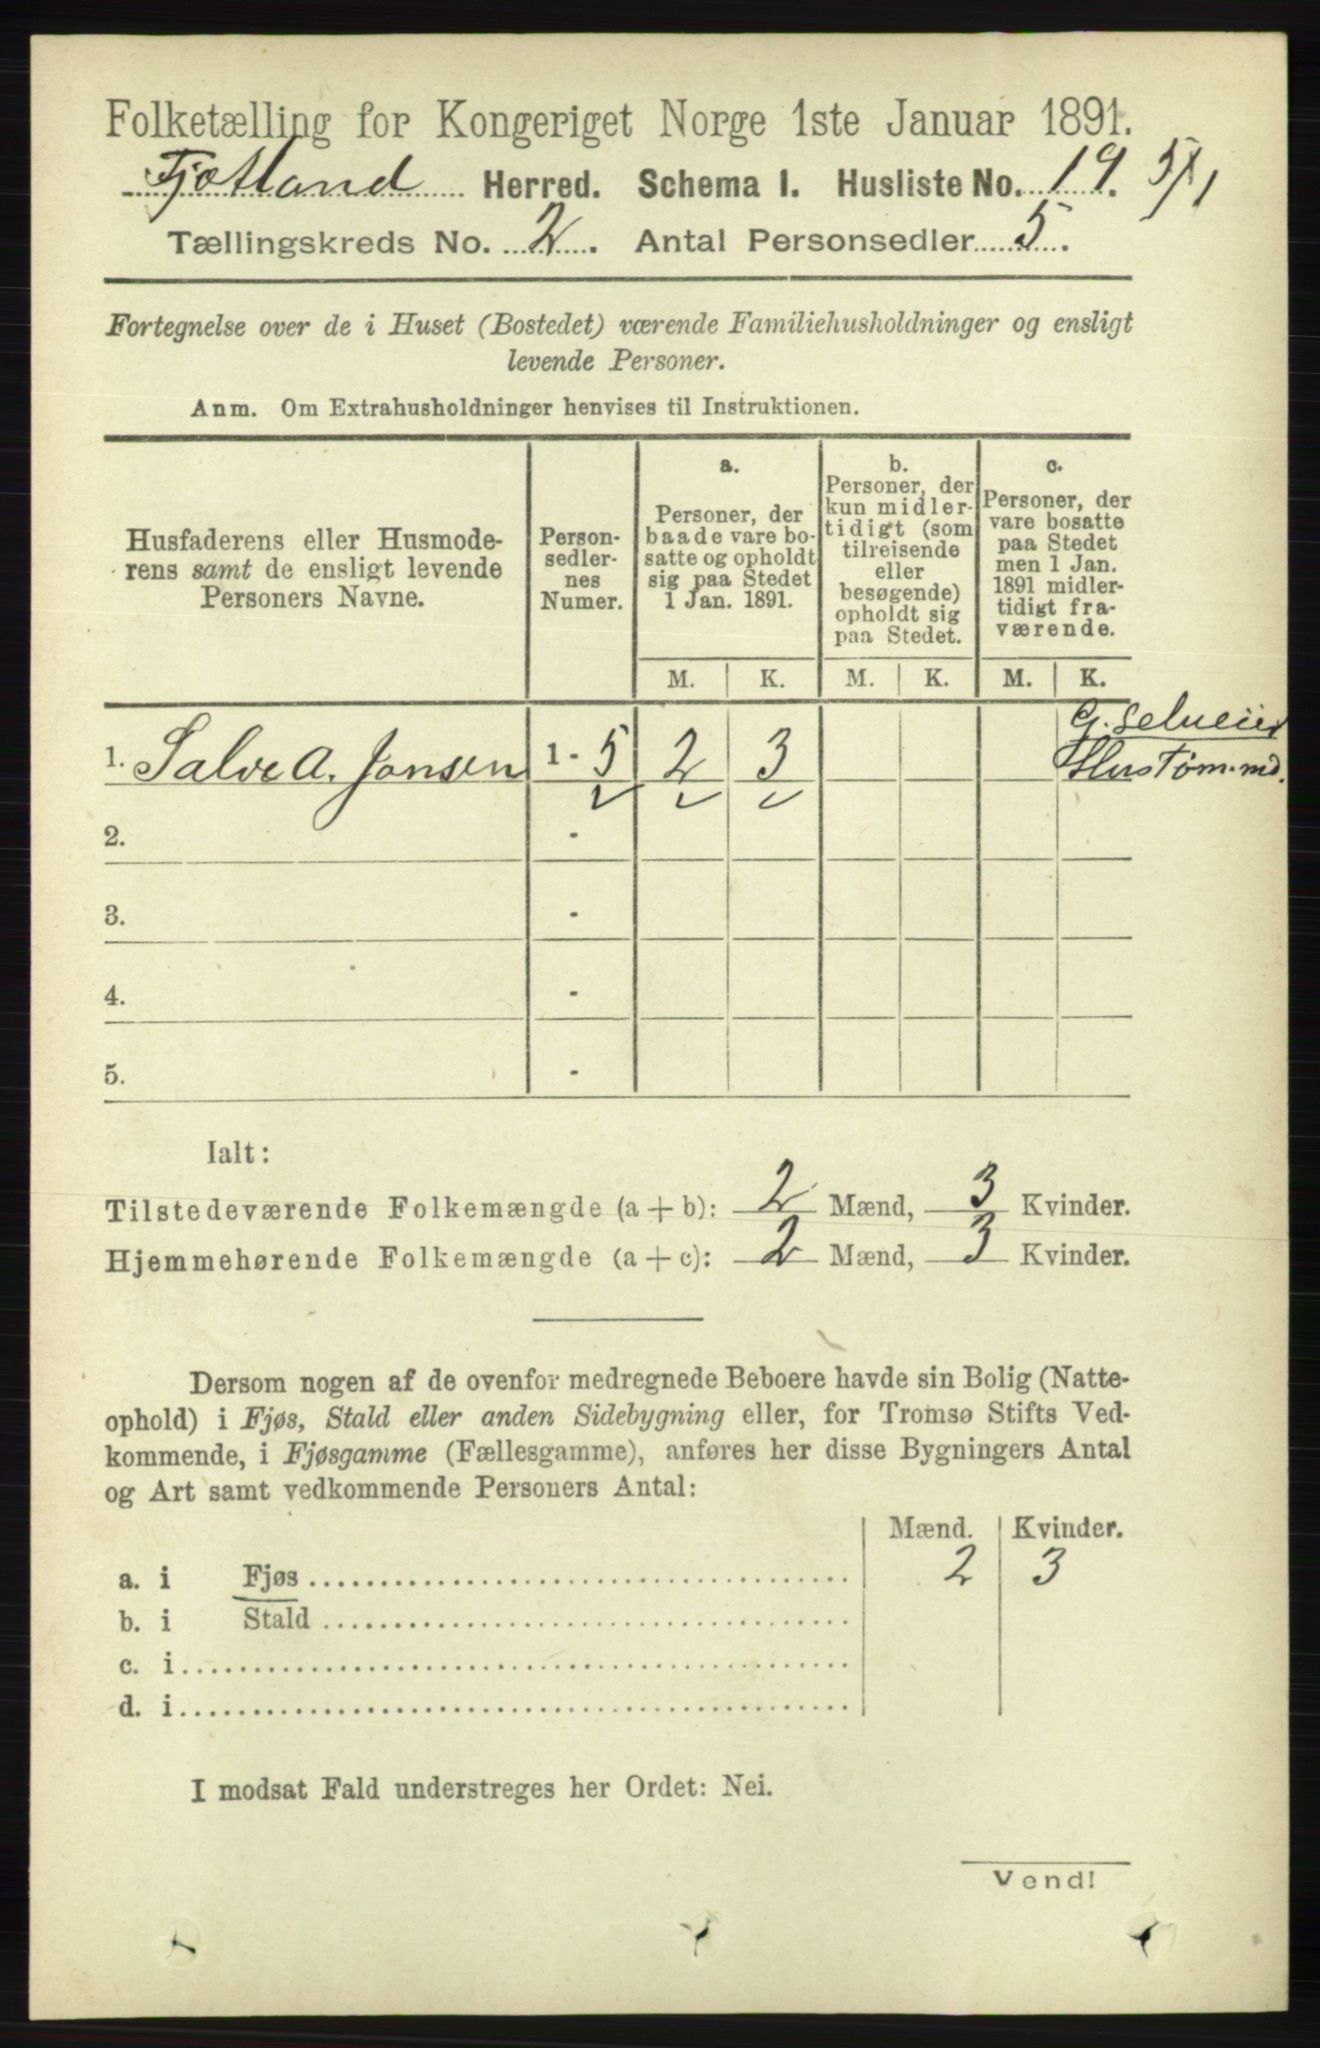 Folketælling for Kongeriget Norge 1ste Januar 1891.
Fjotland Herred. Schema I. Husliste No. 19. 5/1
Tællingskreds No. 2. Antal Personsedler 5.
Fortegnelse over de i Huset (Bostedet) værende Familiehusholdninger og ensligt
levende Personer.
Anm. Om Extrahusholdninger henvises til Instruktionen.
Husfaderens eller Husmode-
rens samt de ensligt levende
Personers Navne.
Person-
sedler-
nes
Numer.
a.
Personer, der
baade vare bo-
satte og opholdt
sig paa Stedet
1 Jan. 1891.
b.
Personer, der
kun midler-
tidigt (som
tilreisende
eller
besøgende)
opholdt sig
paa Stedet.
c.
Personer, der
vare bosatte
paa Stedet
men 1 Jan.
1891 midler-
tidigt fra-
værende.
M. K. M. K. M. K.
G. Selveier
1. Salve A. Jonsen 1 - 5 2 3 Hus Tøm.md.
2. -
3. -
4. -
5. -
Ialt:
Tilstedeværende Folkemængde (a + b): 2 Mænd, 3 Kvinder.
Hjemmehørende Folkemængde (a + c): 2 Mænd, 3 Kvinder.
Dersom nogen af de ovenfor medregnede Beboere havde sin Bolig (Natte-
ophold) i Fjøs, Stald eller anden Sidebygning eller, for Tromsø Stifts Ved-
kommende, i Fjøsgamme (Fællesgamme), anføres her disse Bygningers Antal
og Art samt vedkommende Personers Antal:
Mænd. Kvinder.
a. i Fjøs 2 3
b. i Stald
c. i
d. i
I modsat Fald understreges her Ordet: Nei.
Vend!